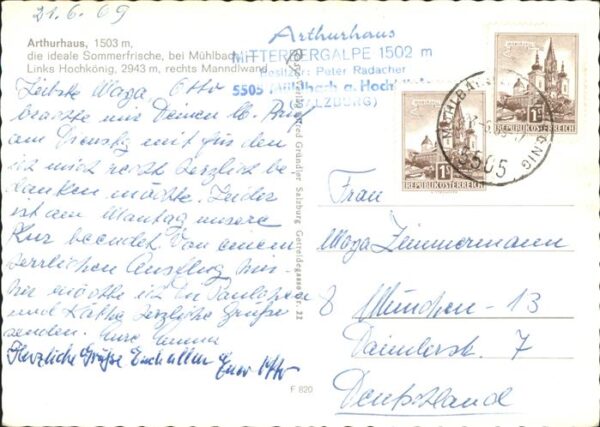 21.6.69
Arthurhaus, 1503 m,
die ideale Sommerfrische, bei Mühlbach
Links Hochkönig, 2943 m, rechts Manndlwand
Arthurhaus
MITTERBERGALPE 1502 m
Besitzer: Peter Radacher
5505 Mühlbach a. Hoch
(SALZBURG)
Liebste Maga, Otto
brachte mir Deinen lb. Brief
am Dienstag mit für den
ich mich recht herzlich be-
danken möchte. Leider
ist am Montag unsere
Kur beendet. Von einem
herrlichen Ausflug hier-
her möchte ich Dir
und Käthe herzliche Grüße
senden. Eure
Herzliche Grüße Euch allen Euer Otto
Gründler Salzburg Getreidegasse Nr. 22
F 820
1S
REPUBLIK ÖSTERREICH
1S
REPUBLIK ÖSTERREICH
5505
Frau
Maga Zimmermann
8 München - 13
Daimlerstr. 7
Deutschland